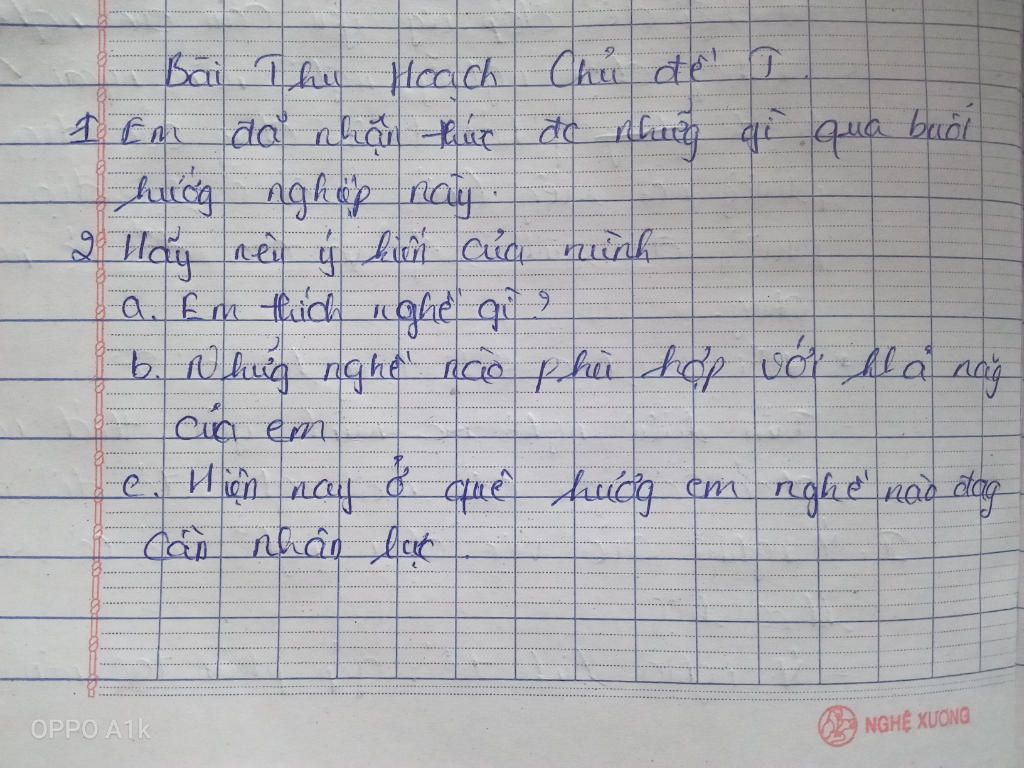 Bài Thu Hoạch Chủ đề I
1 Em đã nhận thức đc những gì qua buổi
hướng nghiệp này.
2 Hãy nêu ý kiến của mình
a. Em thích nghề gì?
b. Những nghề nào phù hợp với khả năng
của em
c. Hiện nay ở quê hương em nghề nào đang
cần nhân lực.
OPPO A1k
NGHỆ XƯƠNG